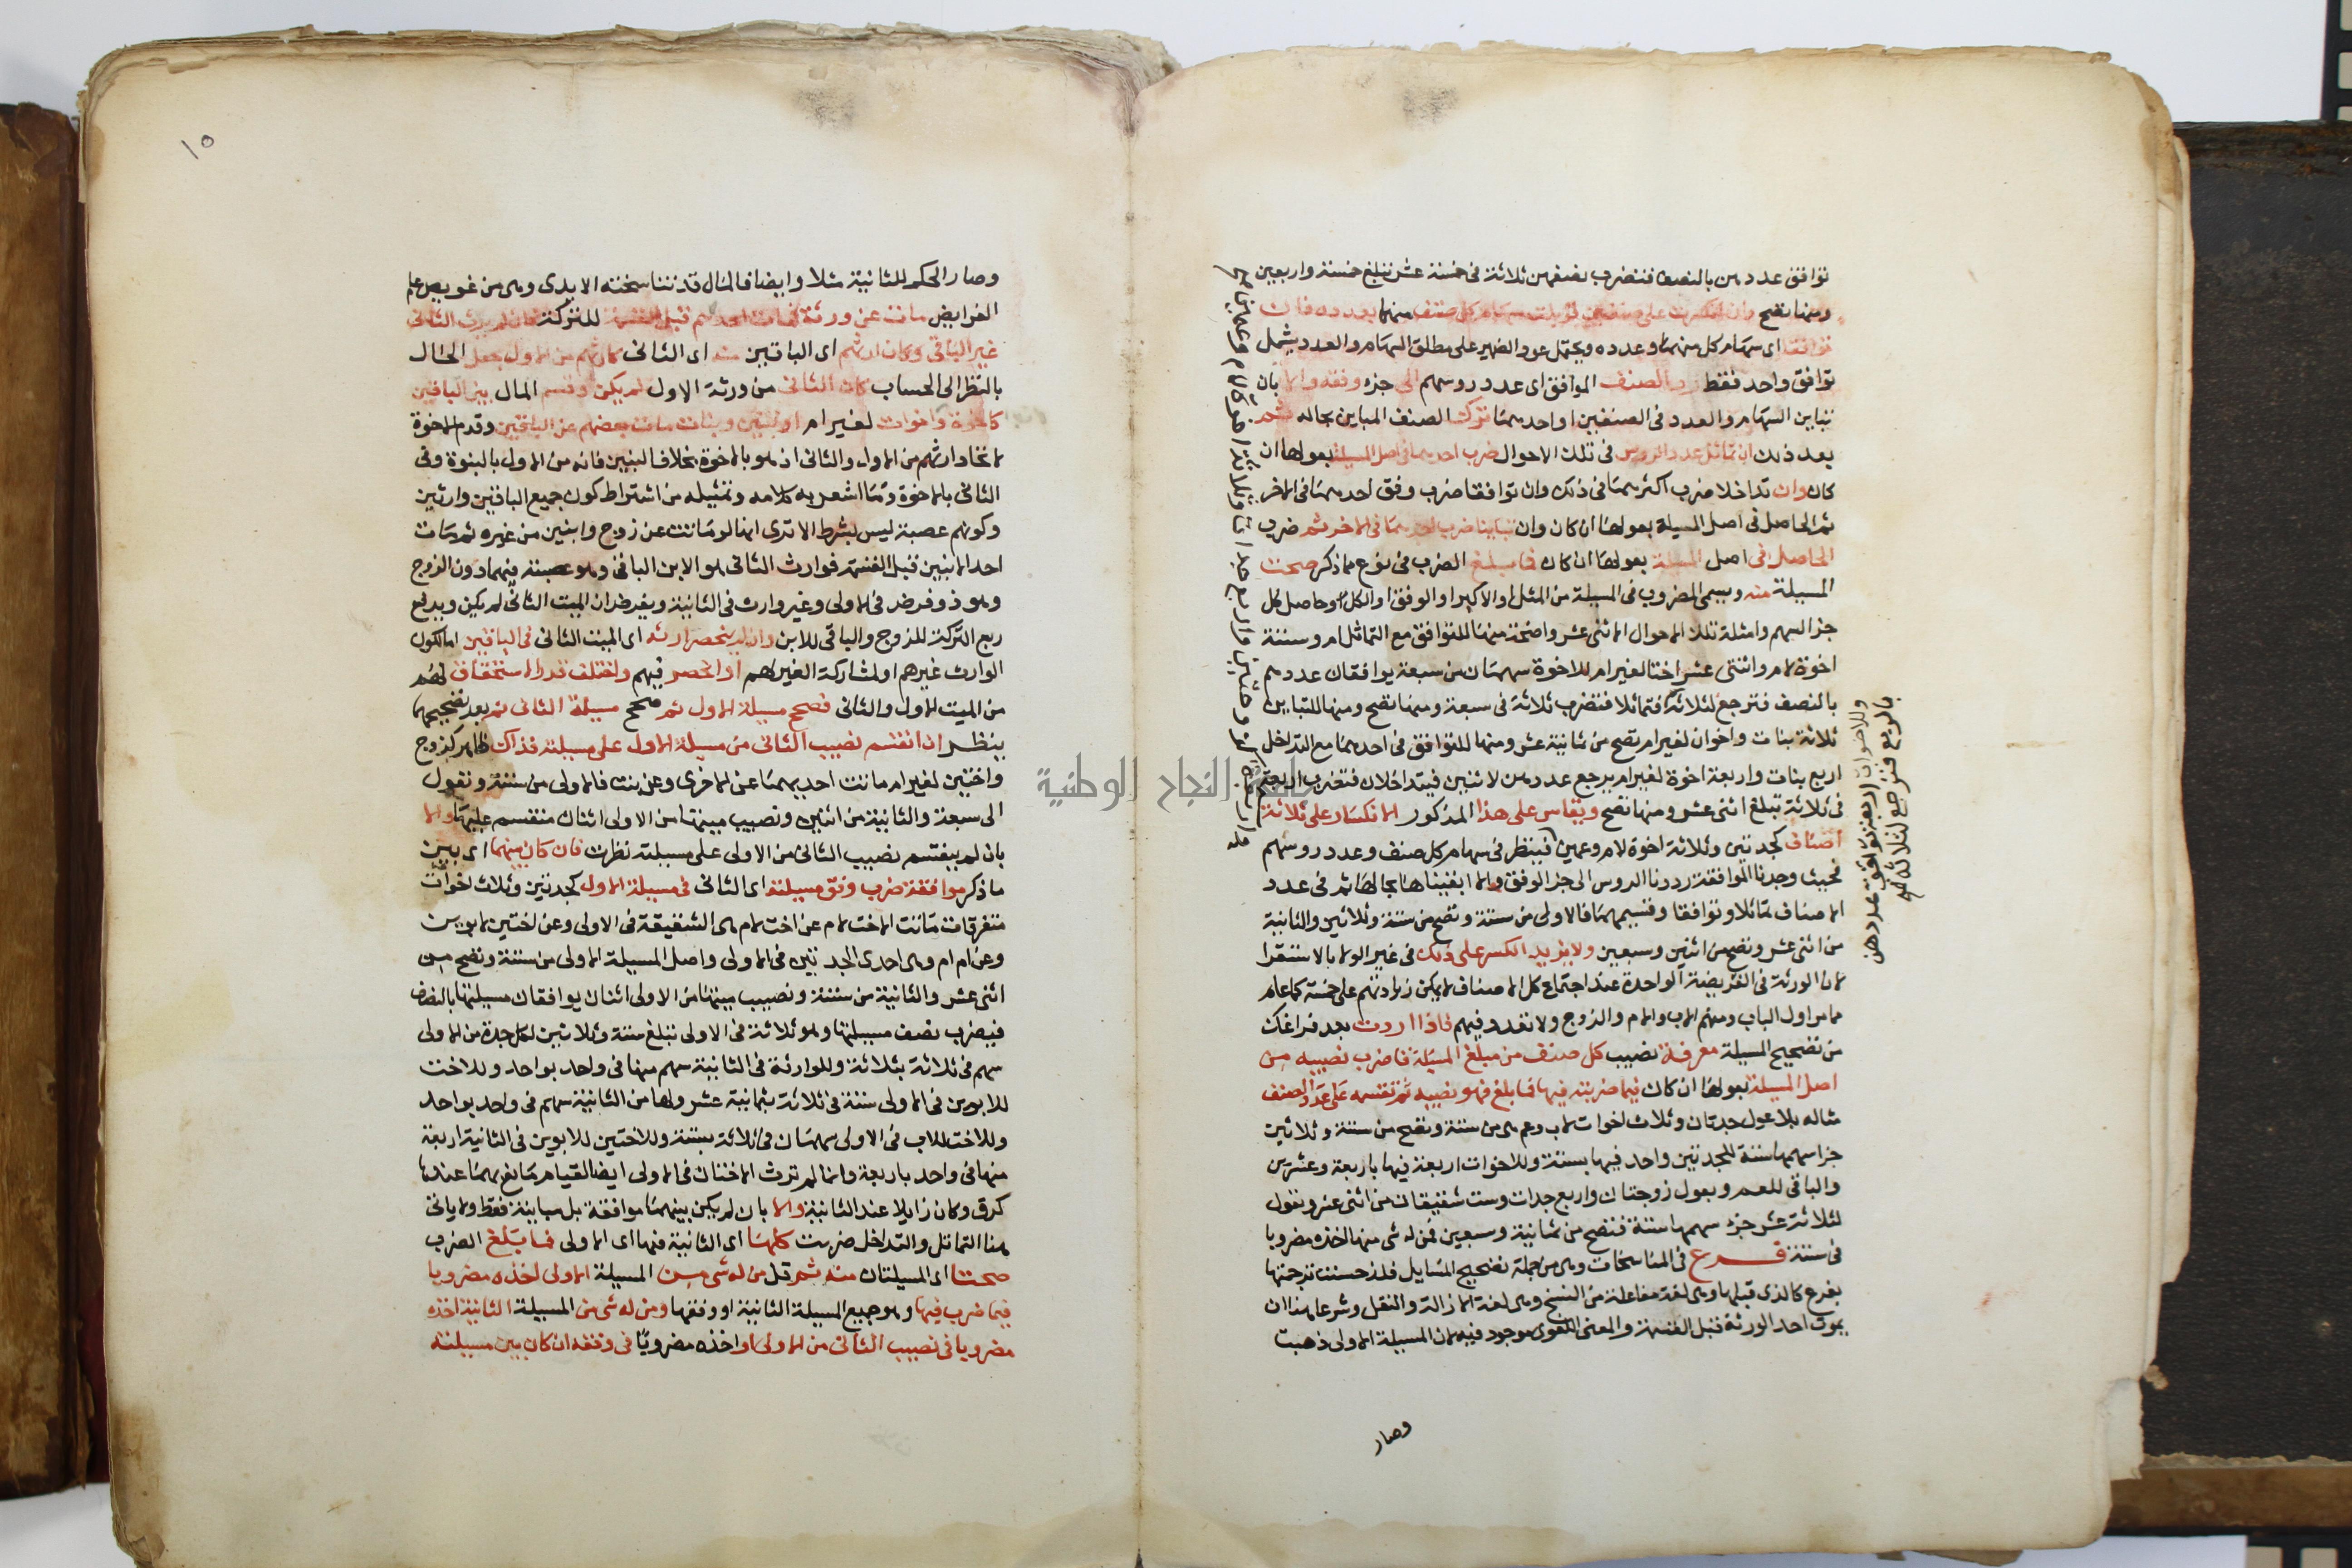 توافق عددهن بالنصف فتضرب نصفهن ثلاثة في خمسة عشر تبلغ خمسة واربعين
ومنها تصح وان انكسرت على صنفين قوبلت سهام كل صنف منهما بعدده فان
توافقا اى سهام كل منهما وعدده ويحتمل عود الضمير على مطلق السهام والعدد يشمل
توافق واحد فقط رد الصنف الموافق اى عدد روسهم الى جزء وفقه والا بان
تباين السهام والعدد في الصنفين او احدهما ترك الصنف المباين بحاله ثم
بعد ذلك ان تماثل عدد الروس في تلك الاحوال ضرب احدهما في اصل المسيلة بعولها ان
كان وان تداخلا ضرب اكثرهما في ذلك وان توافقا ضرب وفق احدهما في الاخر
ثم الحاصل في اصل المسيلة بعولها ان كان وان تباينا ضرب احدهما في الاخر ثم ضرب
الحاصل في اصل المسيلة بعولها ان كان فما بلغ الضرب في نوع مما ذكر صحت
المسيلة منه ويسمى المضروب في المسيلة من المثل او الاكبر او الوفق او الكل او حاصل كل
جزء السهم وامثلة تلك الاحوال الاثنى عشر واضحة منها للتوافق مع التماثل ام وستة
اخوة لام واثنتى عشر اختا لغير ام للاخوة سهمان من سبعة يوافقان عددهم
بالنصف فترجع لثلاثة فتماثلا فتضرب ثلاثة في سبعة ومنها تصح ومنها للتباين
ثلاثة بنات واخوان لغير ام تصح من ثمانية عشر ومنها للتوافق في احدهما مع التداخل
اربع بنات واربعة اخوة لغير ام يرجع عددهن لاثنين فيتداخلان فتضرب اربعة
في ثلاثة تبلغ اثنى عشر ومنها تصح ويقاس على هذا المذكور الانكسار على ثلاثة
اصناف كجدتين وثلاثة اخوة لام وعمين فينظر في سهام كل صنف وعدد روسهم
فحيث وجدنا الموافقة رددنا الروس الى جزء الوفق والا ابقيناها بحالها ثم في عدد
الاصناف تماثلا وتوافقا وقسيمهما فالاولى من ستة وتصح من ستة وثلاثين والثانية
من اثنى عشر وتصح من اثنين وسبعين ولا يزيد الكسر على ذلك في غير الولاء بالاستقرا
لان الورثة في الفريضة الواحدة عند اجتماع كل الاصناف لا يمكن زيادتهم على خمسة كما علم
مما مر اول الباب ومنهم الاب والام والزوج ولا تعدد فيهم فاذا اردت بعد فراغك
من تصحيح المسيلة معرفة نصيب كل صنف من مبلغ المسيلة فاضرب نصيبه من
اصل المسيلة بعولها ان كان فيما ضربته فيها فما بلغ فهو نصيبه ثم تقسمه على عدد الصنف
مثاله بلا عول جدتان وثلاث اخوات لاب وعم هى من ستة وتصح من ستة وثلاثين
جزء سهمها ستة للجدتين واحد فيها بستة وللاخوات اربعة فيها باربعة وعشرين
والباقي للعم وبعول زوجتان واربع جدات وست شقيقات من اثنى عشر وتعول
لثلاثة عشر جزء سهمها ستة فتصح من ثمانية وسبعين فمن له شى منها اخذه مضروبا
في ستة فرع في المناسخات وهى من جملة تصحيح المسايل فلذا حسنت ترجمتها
بفرع كالذى قبلها وهى لغة مفاعلة من النسخ وهى لغة الازالة والنقل وشرعا هنا ان
يموت احد الورثة قبل القسمة والمعنى اللغوى موجود فيه لان المسيلة الاولى ذهبت
وصار
وللاخوات اربعة توافق عددهن
بالربع فترجع لثلاثة
١٥
وصار الحكم للثانية مثلا وايضا فالمال قد تناسخته الايدى وهى من غويص علم
الفرايض مات عن ورثة فمات احدهم قبل القسمة للتركة فان لم يرث الثانى
غير الباقي وكان ارثهم اى الباقين منه اى الثانى كارثهم من الاول جعل الحال
بالنظر الى الحساب كان الثانى من ورثة الاول لم يكن وقسم المال بين الباقين
كاخوة واخوات لغير ام او بنين وبنات مات بعضهم عن الباقين وقدم الاخوة
لاتحاد ارثهم من الاول والثانى اذ هو بالاخوة بخلاف البنين فانه من الاول بالبنوة وفى
الثانى بالاخوة وما اشعر به كلامه وتمثيله من اشتراط كون جميع الباقين وارثين
وكونهم عصبة ليس بشرط الا ترى انها لو ماتت عن زوج وابنين من غيره ثم مات
احد الابنين قبل القسمة فوارث الثانى هو الابن الباقى وهو عصبة فيهما دون الزوج
وهو ذو فرض في الاولى وغير وارث في الثانية ويفرض ان الميت الثانى لم يكن ويدفع
ربع التركة للزوج والباقي للابن وان لم ينحصر ارثه اى الميت الثانى في الباقين اما لكون
الوارث غيرهم او لمشاركة الغير لهم او انحصر فيهم واختلف قدر الاستحقاق لهم
من الميت الاول والثانى فصحح مسيلة الاول ثم صحح مسيلة الثانى ثم بعد تصحيحهما
ينظر ان انقسم نصيب الثانى من مسيلة الاول على مسيلته فذاك ظاهر كزوج
واختين لغير ام ماتت احديهما عن الاخرى وعن بنت فالاولى من ستة وتعول
الى سبعة والثانية من اثنين ونصيب ميتها من الاولى اثنان منقسم عليها والا
بان لم ينقسم نصيب الثانى من الاولى على مسيلته نظرت فان كان بينهما اى بين
ما ذكر موافقة ضرب وفق مسيلته اى الثانى في مسيلة الاول كجدتين وثلاث اخوات
متفرقات ماتت الاخت لام عن اخت لام هى الشقيقة في الاولى وعن اختين لابوين
وعن ام ام وهى احدى الجدتين في الاولى واصل المسيلة الاولى من ستة وتصح من
اثنى عشر والثانية من ستة ونصيب ميتها من الاولى اثنان يوافقان مسيلتها بالنصف
فيضرب نصف مسيلتها وهو ثلاثة في الاولى تبلغ ستة وثلاثين لكل جدة من الاولى
سهم في ثلاثة بثلاثة وللوارثة في الثانية سهم منها في واحد بواحد وللاخت
للابوين في الاولى ستة في ثلاثة بثمانية عشر ولها من الثانية سهم في واحد بواحد
وللاخت للاب في الاولى سهمان في ثلاثة بستة وللاختين للابوين في الثانية اربعة
منها في واحد باربعة وانما لم ترث الاختان في الاولى ايضا لقيام مانع بهما عندها
كرق وكان زايلا عند الثانية والا بان لم يكن بينهما موافقة بل مباينة فقط ولا ياتى
هنا التماثل والتداخل ضربت كلها اى الثانية فيها اى الاولى فما بلغ الضرب
صحتا اى المسيلتان منه ثم قل من له شى من المسيلة الاولى اخذه مضروبا
فيما ضرب فيها وهو جميع المسيلة الثانية او وفقها ومن له شى من المسيلة الثانية اخذه
مضروبا في نصيب الثانى من الاولى او اخذه مضروبا في وفقه ان كان بين مسيلته
جامعة النجاح الوطنية